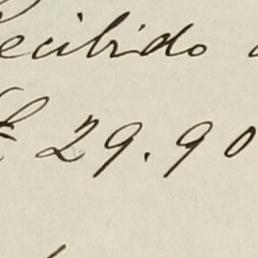 ecibido
29.90